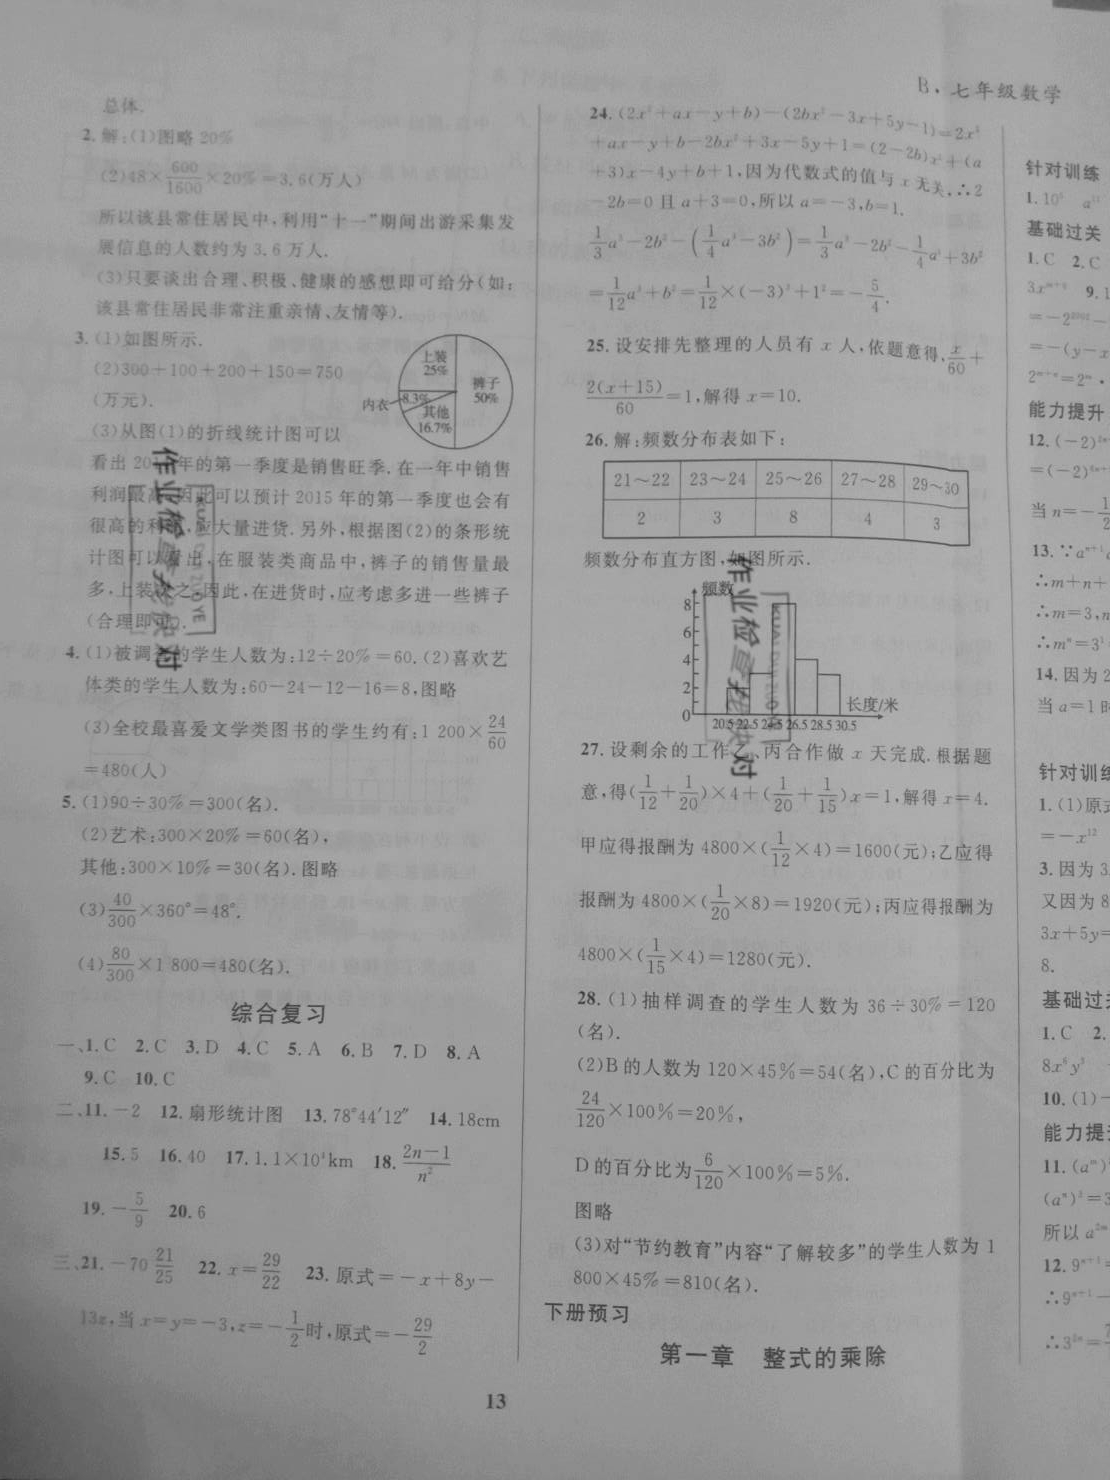 B·七年级数学
总体.
2.解:(1)图略 20%
(2)48×600/1600×20%=3.6(万人)
所以该县常住居民中,利用“十一”期间出游采集发
展信息的人数约为3.6万人.
(3)只要谈出合理、积极、健康的感想即可给分(如:
该县常住居民非常注重亲情、友情等).
3.(1)如图所示.
(2)300+100+200+150=750
(万元).
(3)从图(1)的折线统计图可以
上装
25%
裤子
50%
内衣
8.3%
其他
16.7%
看出 年的第一季度是销售旺季.在一年中销售
利润最高,因此可以预计2015年的第一季度也会有
很高的利 ,应大量进货.另外,根据图(2)的条形统
计图可以看出,在服装类商品中,裤子的销售量最
多,上装次之.因此,在进货时,应考虑多进一些裤子
(合理即可).
4.(1)被调查的学生人数为:12÷20%=60.(2)喜欢艺
体类的学生人数为:60-24-12-16=8,图略
(3)全校最喜爱文学类图书的学生约有:1 200×24/60
=480(人)
5.(1)90÷30%=300(名).
(2)艺术:300×20%=60(名),
其他:300×10%=30(名).图略
(3)40/300×360°=48°.
(4)80/300×1 800=480(名).
综合复习
一、1.C 2.C 3.D 4.C 5.A 6.B 7.D 8.A
9.C 10.C
二、11.-2 12.扇形统计图 13.78°44′12″ 14.18cm
15.5 16.40 17.1.1×10 km 18.(2n-1)/n²
19.-5/9 20.6
三、21.-70 21/25 22.x=29/22 23.原式=-x+8y-
13z,当x=y=-3,z=-1/2时,原式=-29/2
24.(2x²+ax-y+b)-(2bx²-3x+5y-1)=2x²
+ax-y+b-2bx²+3x-5y+1=(2-2b)x²+(a
+3)x-4y+b+1,因为代数式的值与x无关,∴2
-2b=0且a+3=0,所以a=-3,b=1.
1/3a³-2b²-(1/4a³-3b²)=1/3a³-2b²-1/4a³+3b²
=1/12a³+b²=1/12×(-3)³+1²=-5/4.
25.设安排先整理的人员有x人,依题意得,x/60+
2(x+15)/60=1,解得x=10.
26.解:频数分布表如下:
21～22 23～24 25～26 27～28 29～30
2 3 8 4 3
频数分布直方图,如图所示.
频数
8
6
4
2
0
20.5 22.5 24.5 26.5 28.5 30.5
长度/米
27.设剩余的工作乙、丙合作做x天完成.根据题
意,得(1/12+1/20)×4+(1/20+1/15)x=1,解得x=4.
甲应得报酬为4800×(1/12×4)=1600(元);乙应得
报酬为4800×(1/20×8)=1920(元);丙应得报酬为
4800×(1/15×4)=1280(元).
28.(1)抽样调查的学生人数为36÷30%=120
(名).
(2)B的人数为120×45%=54(名),C的百分比为
24/120×100%=20%,
D的百分比为6/120×100%=5%.
图略
(3)对“节约教育”内容“了解较多”的学生人数为1
800×45%=810(名).
下册预习
第一章 整式的乘除
13
作业检查找快对
KUAI DUI ZUO YE
作业检查找快对
KUAI DUI ZUO YE
针对训练
基础过关
1.C 2.C
能力提升
当n=-
∴m+n+
∴m=3,n
14.因为2
当a=1时
针对训练
1.(1)原式
=-x¹²
3.因为3
又因为8
3x+5y=
8.
基础过关
1.C 2.
10.(1)-
能力提升
所以a